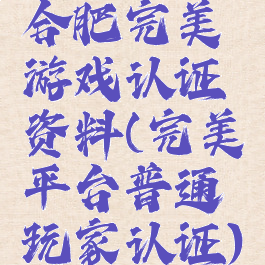 合肥完美
游戏认证
资料(完美
平台普通
玩家认证)